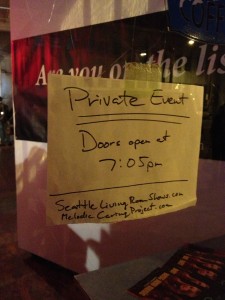 COFF
Are you on the lis
Private Event
Doors open at
7:05pm
SeattleLivingRoomShows.com
MelodicCaringProject.com